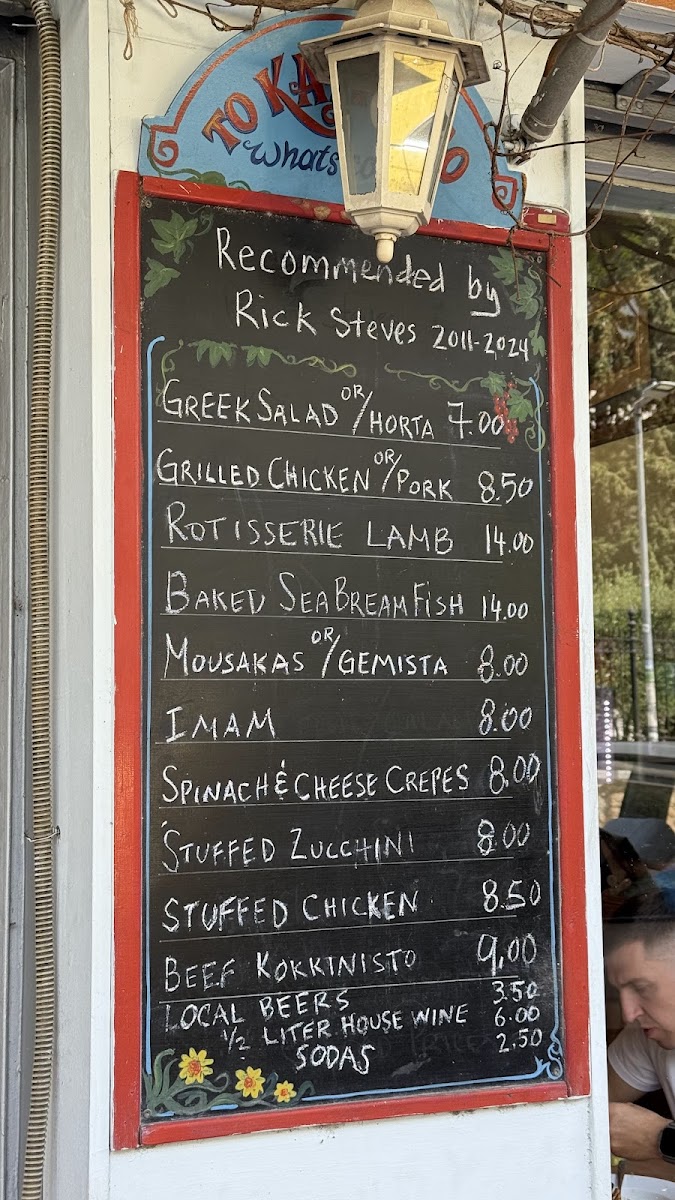 TO
Whats
Recommended by
Rick Steves 2011-2024
GREEK SALAD OR/HORTA 7.00
GRILLED CHICKEN OR/PORK 8.50
ROTISSERIE LAMB 14.00
BAKED SEA BREAM FISH 14.00
MOUSAKAS OR/GEMISTA 8.00
IMAM 8.00
SPINACH & CHEESE CREPES 8,00
STUFFED ZUCCHINI 8.00
STUFFED CHICKEN 8.50
BEEF KOKKINISTO 9,00
LOCAL BEERS 3.50
1/2 LITER HOUSE WINE 6.00
SODAS 2.50